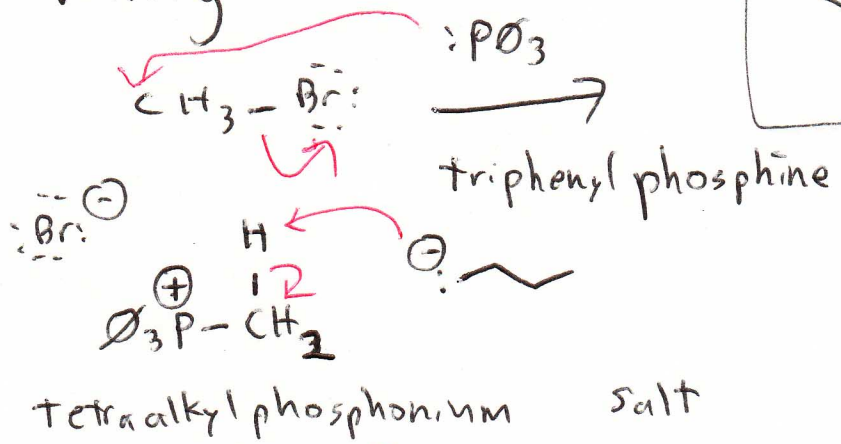 :PØ3
CH3-Br:
triphenyl phosphine
:Br: ⊖
H
⊖:
⊕
Ø3P-CH2
tetraalkylphosphonium salt